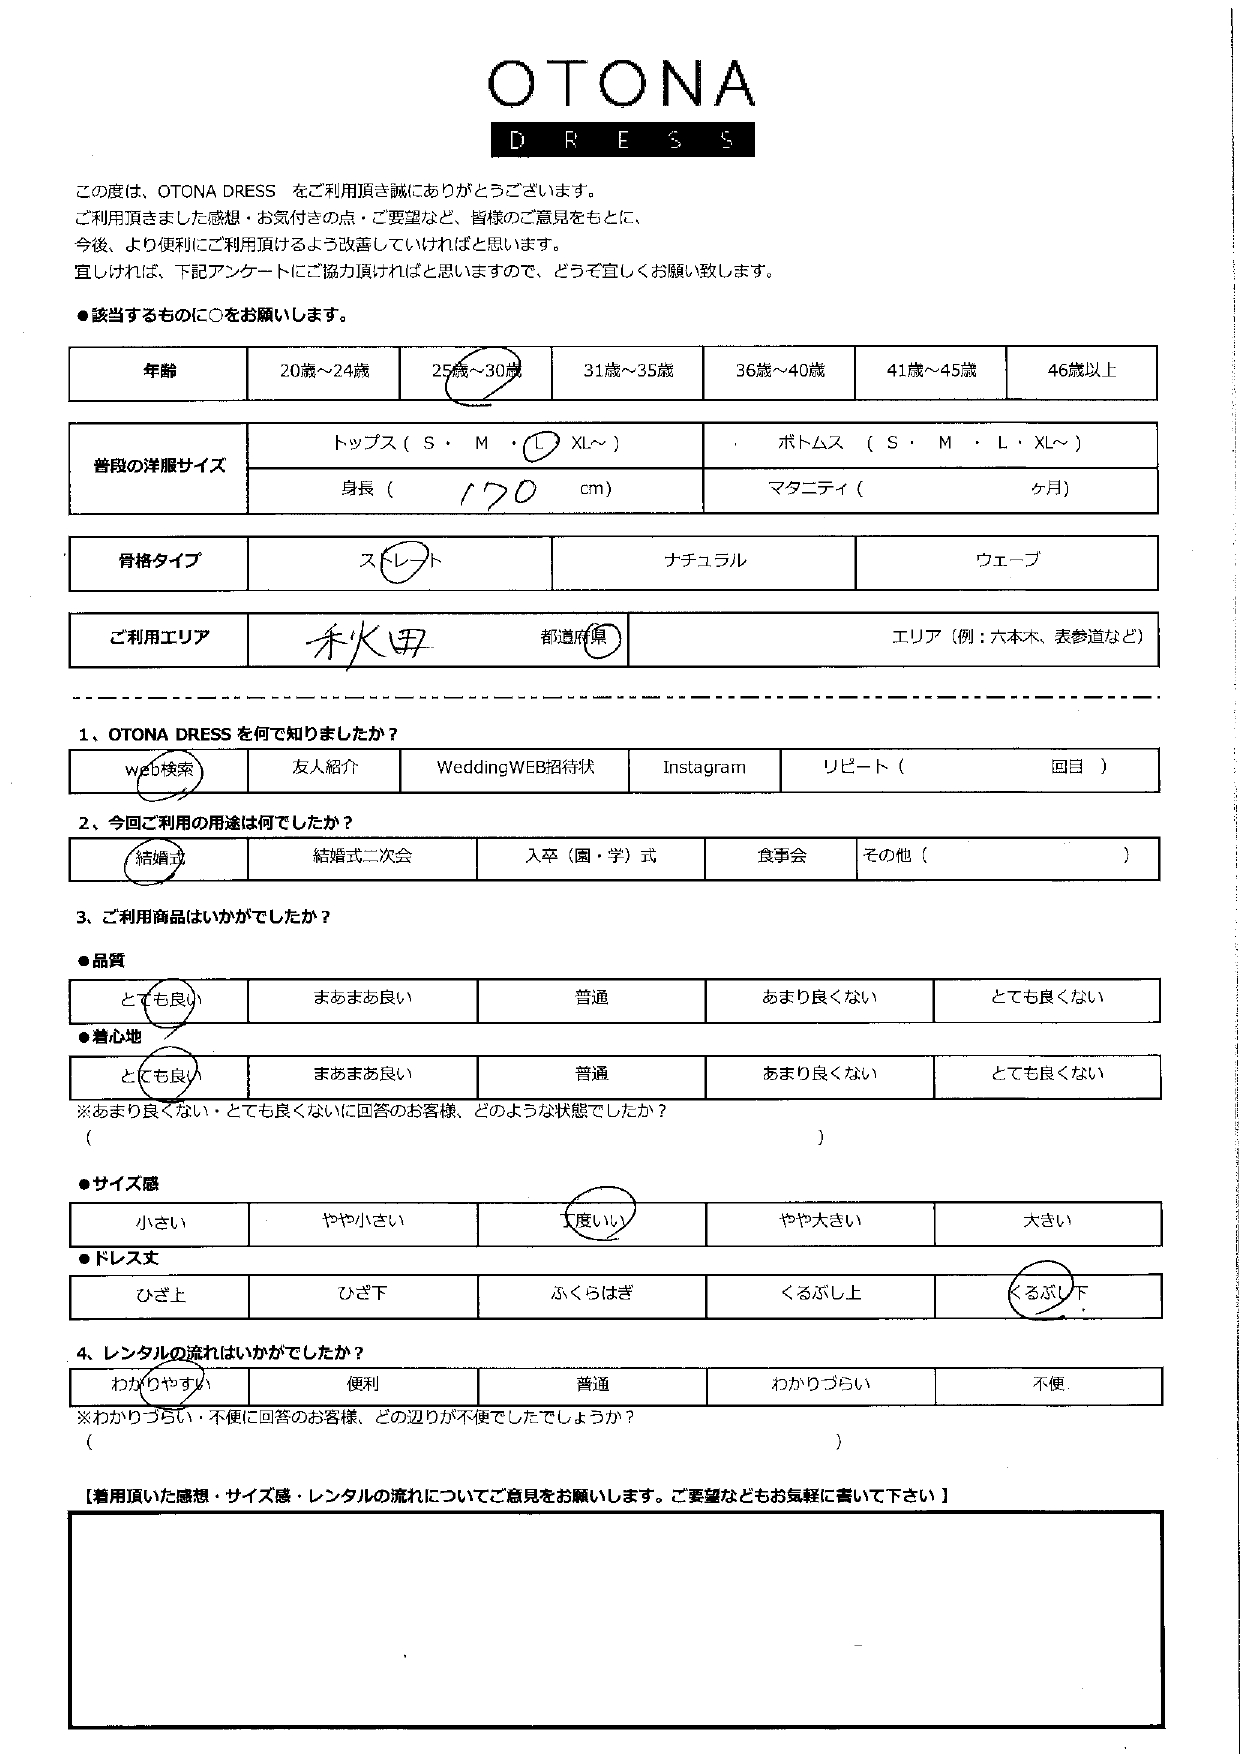 OTONA
DRESS
この度は、OTONA DRESS をご利用頂き誠にありがとうございます。
ご利用頂きました感想・お気付きの点・ご要望など、皆様のご意見をもとに、
今後、より便利にご利用頂けるよう改善していければと思います。
宜しければ、下記アンケートにご協力頂ければと思いますので、どうぞ宜しくお願い致します。
●該当するものに○をお願いします。
年齢 20歳～24歳 25歳～30歳 31歳～35歳 36歳～40歳 41歳～45歳 46歳以上
普段の洋服サイズ トップス ( S ・ M ・ L XL～ ) ボトムス ( S ・ M ・ L ・ XL～ )
身長 ( 170 cm) マタニティ ( ヶ月)
骨格タイプ ストレート ナチュラル ウェーブ
ご利用エリア 秋田 都道府県 エリア（例：六本木、表参道など）
1、OTONA DRESS を何で知りましたか？
web検索 友人紹介 WeddingWEB招待状 Instagram リピート ( 回目 )
2、今回ご利用の用途は何でしたか？
結婚式 結婚式二次会 入卒（園・学）式 食事会 その他 ( )
3、ご利用商品はいかがでしたか？
●品質
とても良い まあまあ良い 普通 あまり良くない とても良くない
●着心地
とても良い まあまあ良い 普通 あまり良くない とても良くない
※あまり良くない・とても良くないに回答のお客様、どのような状態でしたか？
( )
●サイズ感
小さい やや小さい 丁度いい やや大きい 大きい
●ドレス丈
ひざ上 ひざ下 ふくらはぎ くるぶし上 くるぶし下
4、レンタルの流れはいかがでしたか？
わかりやすい 便利 普通 わかりづらい 不便
※わかりづらい・不便に回答のお客様、どの辺りが不便でしたでしょうか？
( )
【着用頂いた感想・サイズ感・レンタルの流れについてご意見をお願いします。ご要望などもお気軽に書いて下さい 】